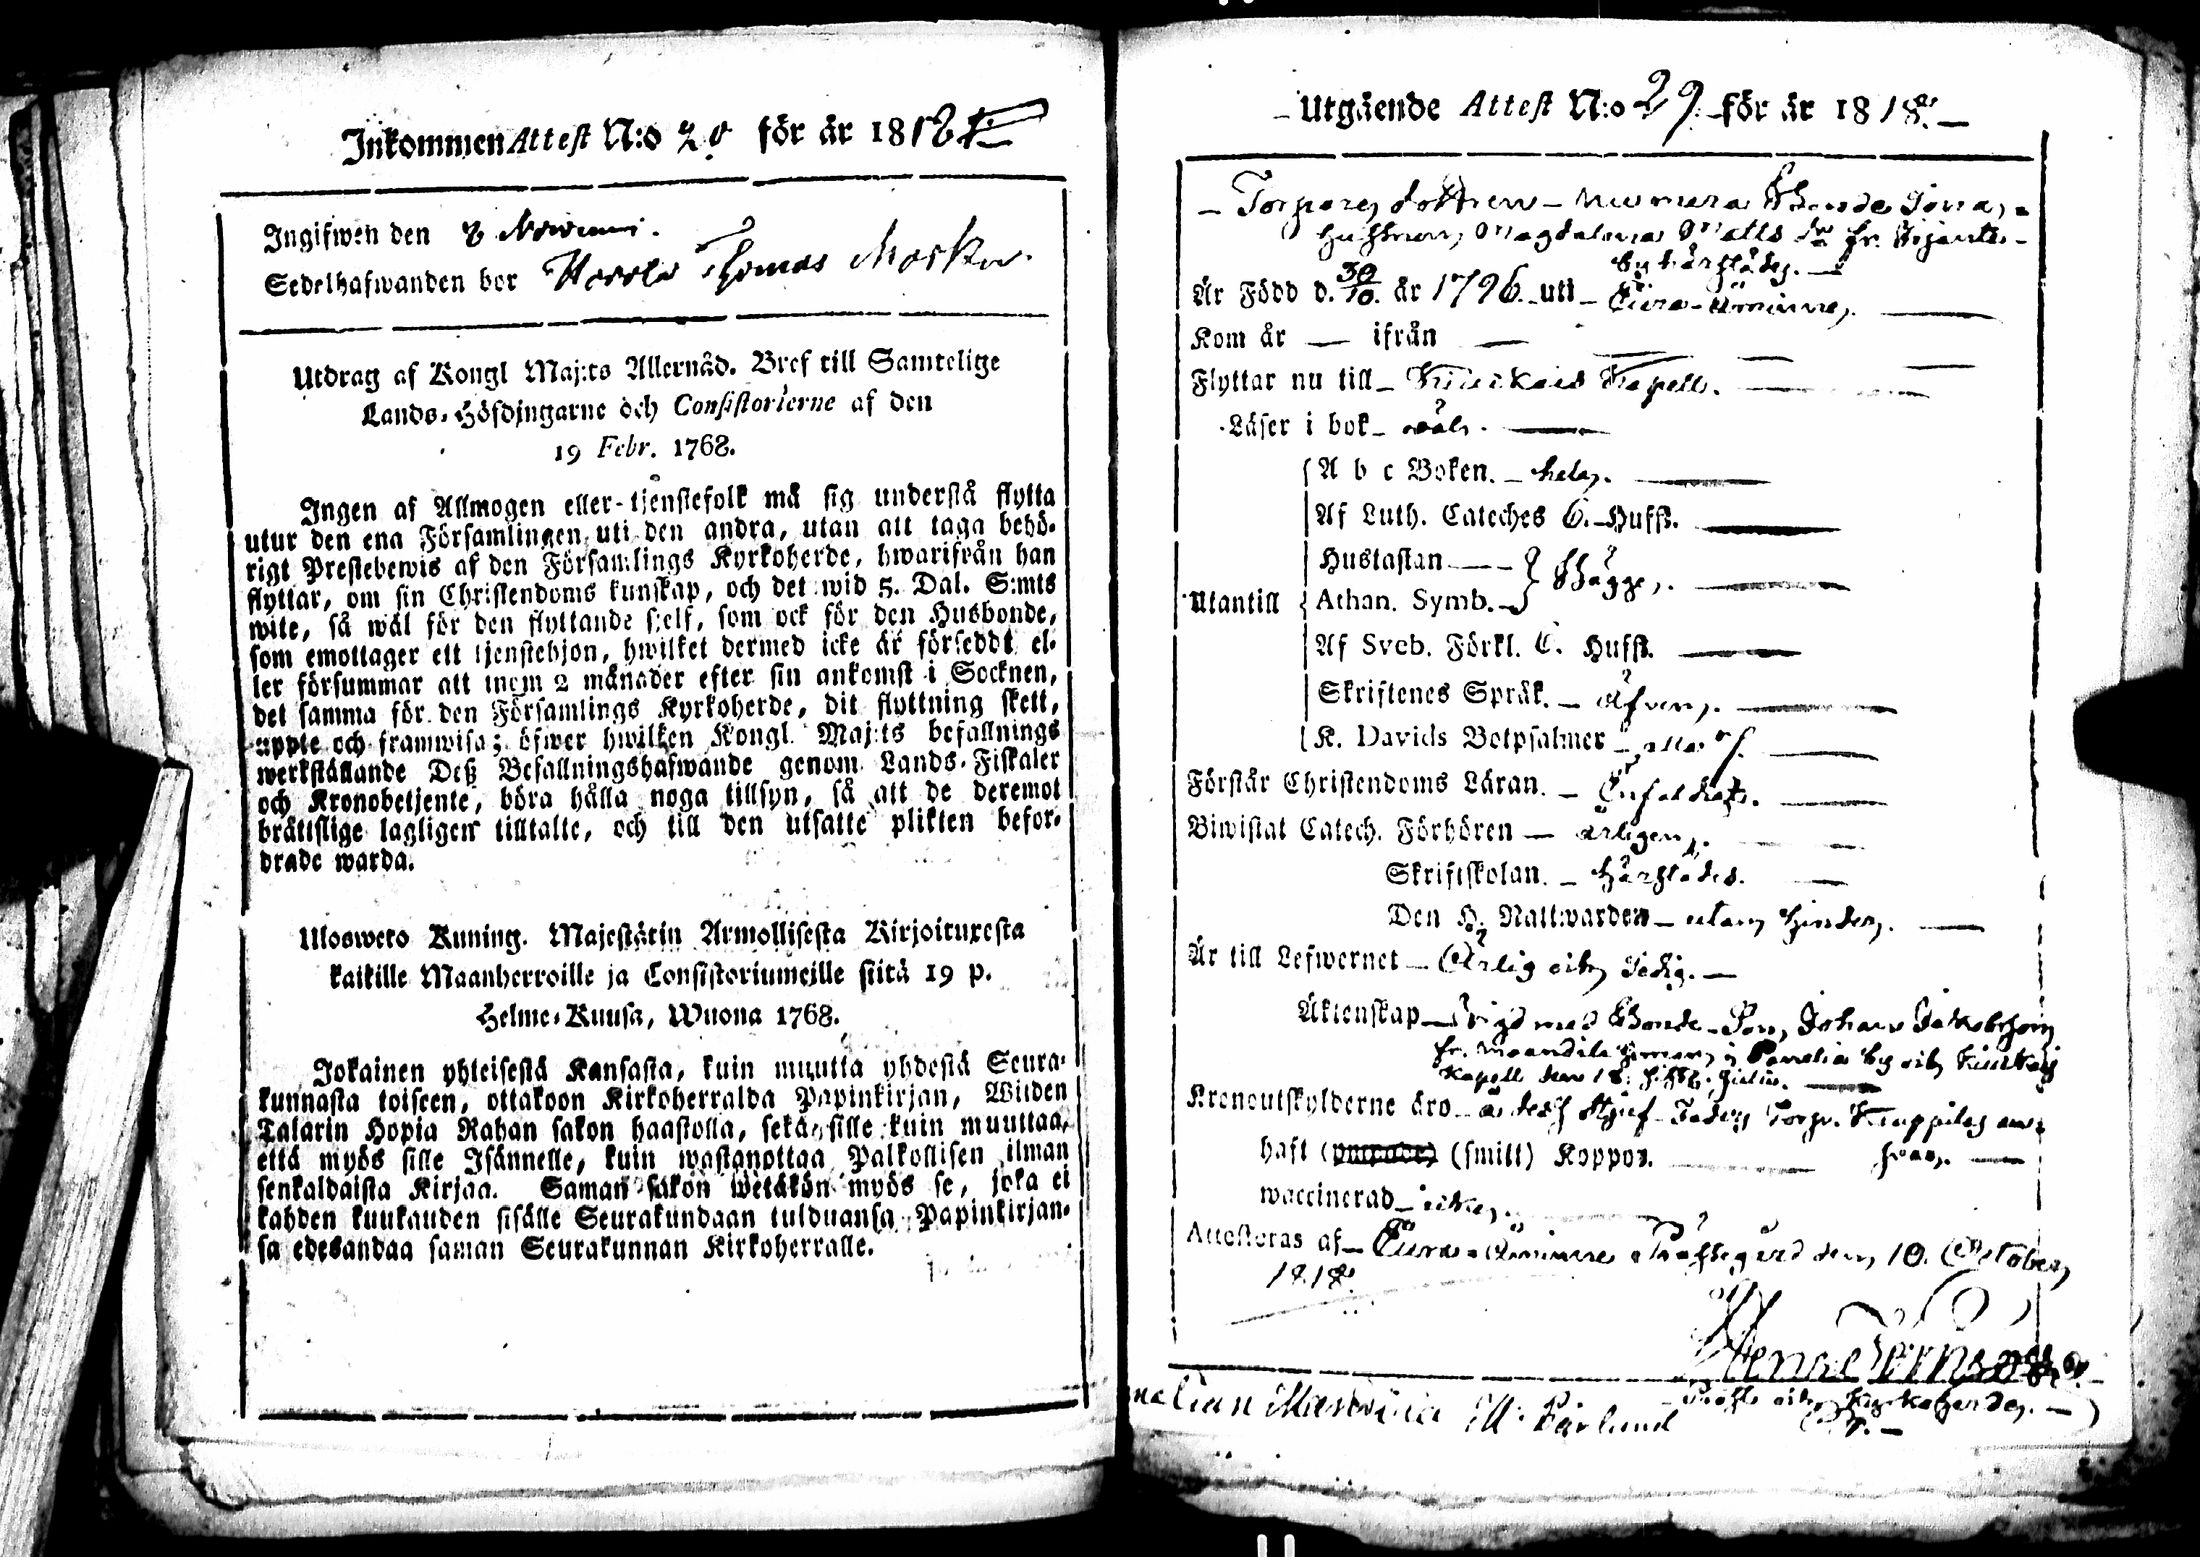 Inkommen Attest N:o 20 för år 1818
Ingifwen den 8 Novemr.
Sedelhafwanden bor Thomas
Utdrag af Kongl Maj:ts Allernåd. Bref till Samtelige
Lands-Höfdingarne och Consistorierne af den
19 Febr. 1768.
Ingen af Allmogen eller tjenstefolk må sig understå flytta
utur den ena Församlingen uti den andra, utan att taga behö-
rigt Prestebewis af den Församlings Kyrkoherde, hwarifrån han
flyttar, om sin Christendoms kunskap, och det wid 5. Dal. S:mts
wite, så wäl för den flyttande sjelf, som ock för den Husbonde,
som emottager ett tjenstehjon, hwilket dermed icke är försedt el-
ler försummar att inom 2 månader efter sin ankomst i Socknen,
det samma för den Församlings Kyrkoherde, dit flyttning skett,
uppte och framwisa; öfwer hwilken Kongl. Maj:ts befallnings
werkställande Deß Befallningshafwande genom Lands-Fiskaler
och Kronobetjente, böra hålla noga tillsyn, så att de deremot
bråttslige lagligen tilltalte, och till den utsatte plikten befor-
drade warda.
Ulosweto Kuning. Majestätin Armollisesta Kirjoituxesta
kaikille Maanherroille ja Consistoriumeille siitä 19 p.
Helme-Kuusa, Wuona 1768.
Jokainen yhteisestä Kansasta, kuin muutta yhdestä Seura-
kunnasta toiseen, ottakoon Kirkoherralda Papinkirjan, Wiiden
Talarin Hopia Rahan sakon haastolla, sekä sille kuin muuttaa,
että myös sille Isännelle, kuin wastanottaa Palkollisen ilman
senkaldaista Kirjaa. Saman sakon wetäkön myös se, joka ei
kahden kuukauden sisälle Seurakundaan tulduansa Papinkirjan-
sa edesandaa saman Seurakunnan Kirkoherralle.
Utgående Attest N:o 29 för år 1818.
Torpare dottren numera Bonde Sona
hustrun Magdalena Matts dr fr.
by härstädes.
Är Född d. 30/10. år 1796. uti Eura-Åminne.
Kom år — ifrån —
Flyttar nu till Kiukais Kapell.
Läser i bok wäl.
A b c Boken. hela.
Af Luth. Cateches 6. Hufst.
Hustaflan
Bägge.
Utantill
Athan. Symb.
Af Sveb. Förkl. 6. Hufst.
Skriftenes Språk. äfven.
K. Davids Botpsalmer alla 7.
Förstår Christendoms Läran. Enfaldigt.
Biwistat Catech. Förhören årligen.
Skriftskolan. härstädes.
Den H. Nattwarden utan hinder.
Är till Lefwernet Ärlig och Sedig.
Äktenskap Vigd med Bonde Son Johan Jakobsson
fr. i Panelia by och Kiukais
Kapell den 18. Julii.
Kronoutskylderne äro å dess Styf-Faders Torp. an-
svar.
haft (smitt) Koppor.
waccinerad icke.
Attesteras af Eura-Åminne Prästegård den 10. October
1818.
Prost och Kyrkoherde.